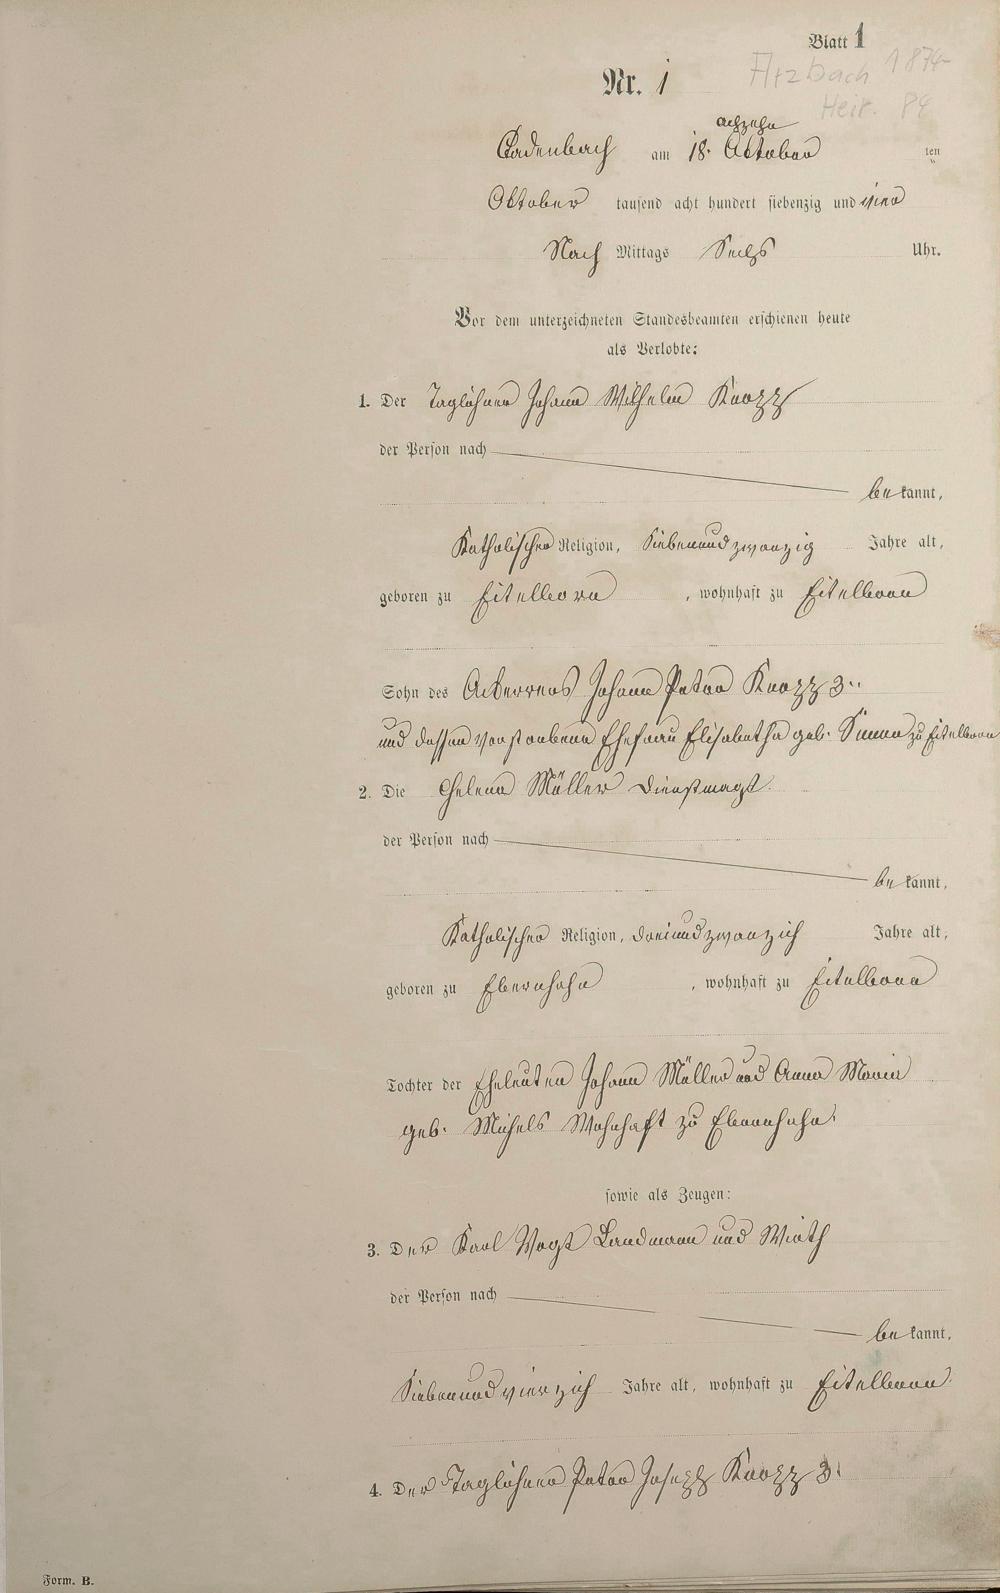 Blatt 1
Arzbach 1874
Heir. 84
Nr. 1
achzehn
Cadenbach am 18. Oktober ten
Oktober tausend acht hundert siebenzig und vier
Nach Mittags Sechs Uhr.
Vor dem unterzeichneten Standesbeamten erschienen heute
als Verlobte:
1. Der Taglöhner Johann Wilhelm Knopp
der Person nach
be kannt,
Katholischer Religion, Siebenundzwanzig Jahre alt,
geboren zu Eitelborn, wohnhaft zu Eitelborn
Sohn des Ackerers Johann Peter Knopp 3.
und dessen verstorbene Ehefrau Elisabetha geb. zu Eitelborn
2. Die Helena Müller Dienstmagt.
der Person nach
be kannt,
Katholischer Religion, dreiundzwanzich Jahre alt,
geboren zu Ebernhahn, wohnhaft zu Eitelborn
Tochter der Eheleuten Johann Müller und Anna Maria
geb. Michels Wohnhaft zu Ebernhahn.
sowie als Zeugen:
3. Der Karl Vogt Landmann und Wirth
der Person nach
be kannt,
Siebenundvierzich Jahre alt, wohnhaft zu Eitelborn.
4. Der Taglöhner Peter Joseph Knopp 3.
Form. B.